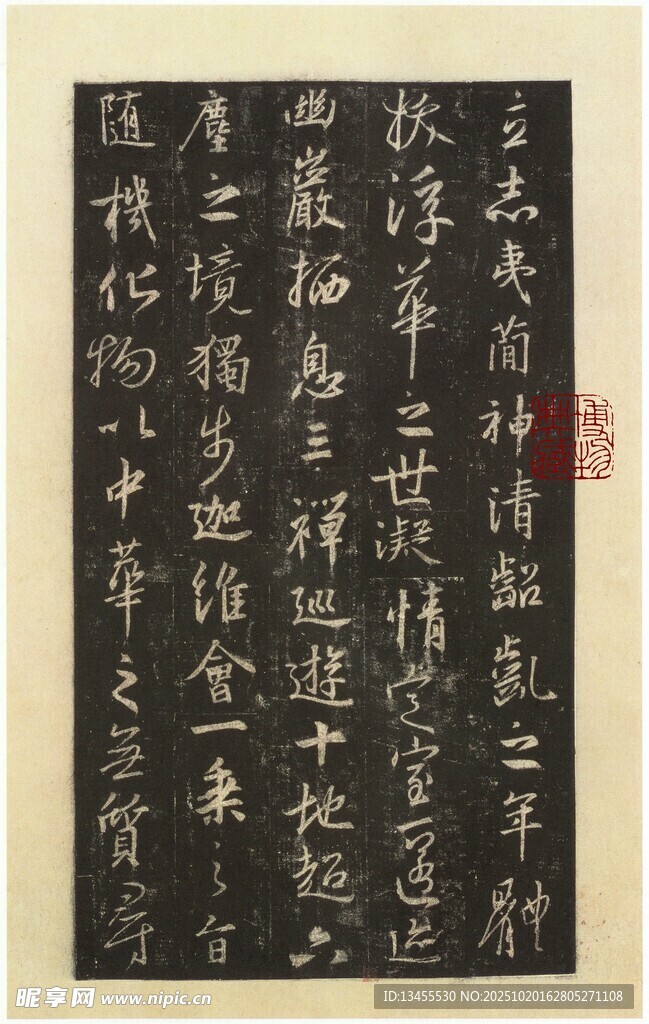 立志夷簡神清齠齔之年體
拔浮華之世凝情定室匿迹
幽巖栖息三禪巡遊十地超六
塵之境獨步迦維會一乘之旨
随機化物以中華之無質尋
博物
昵享网 www.nipic.cn
ID:13455530 NO:20251020162805271108